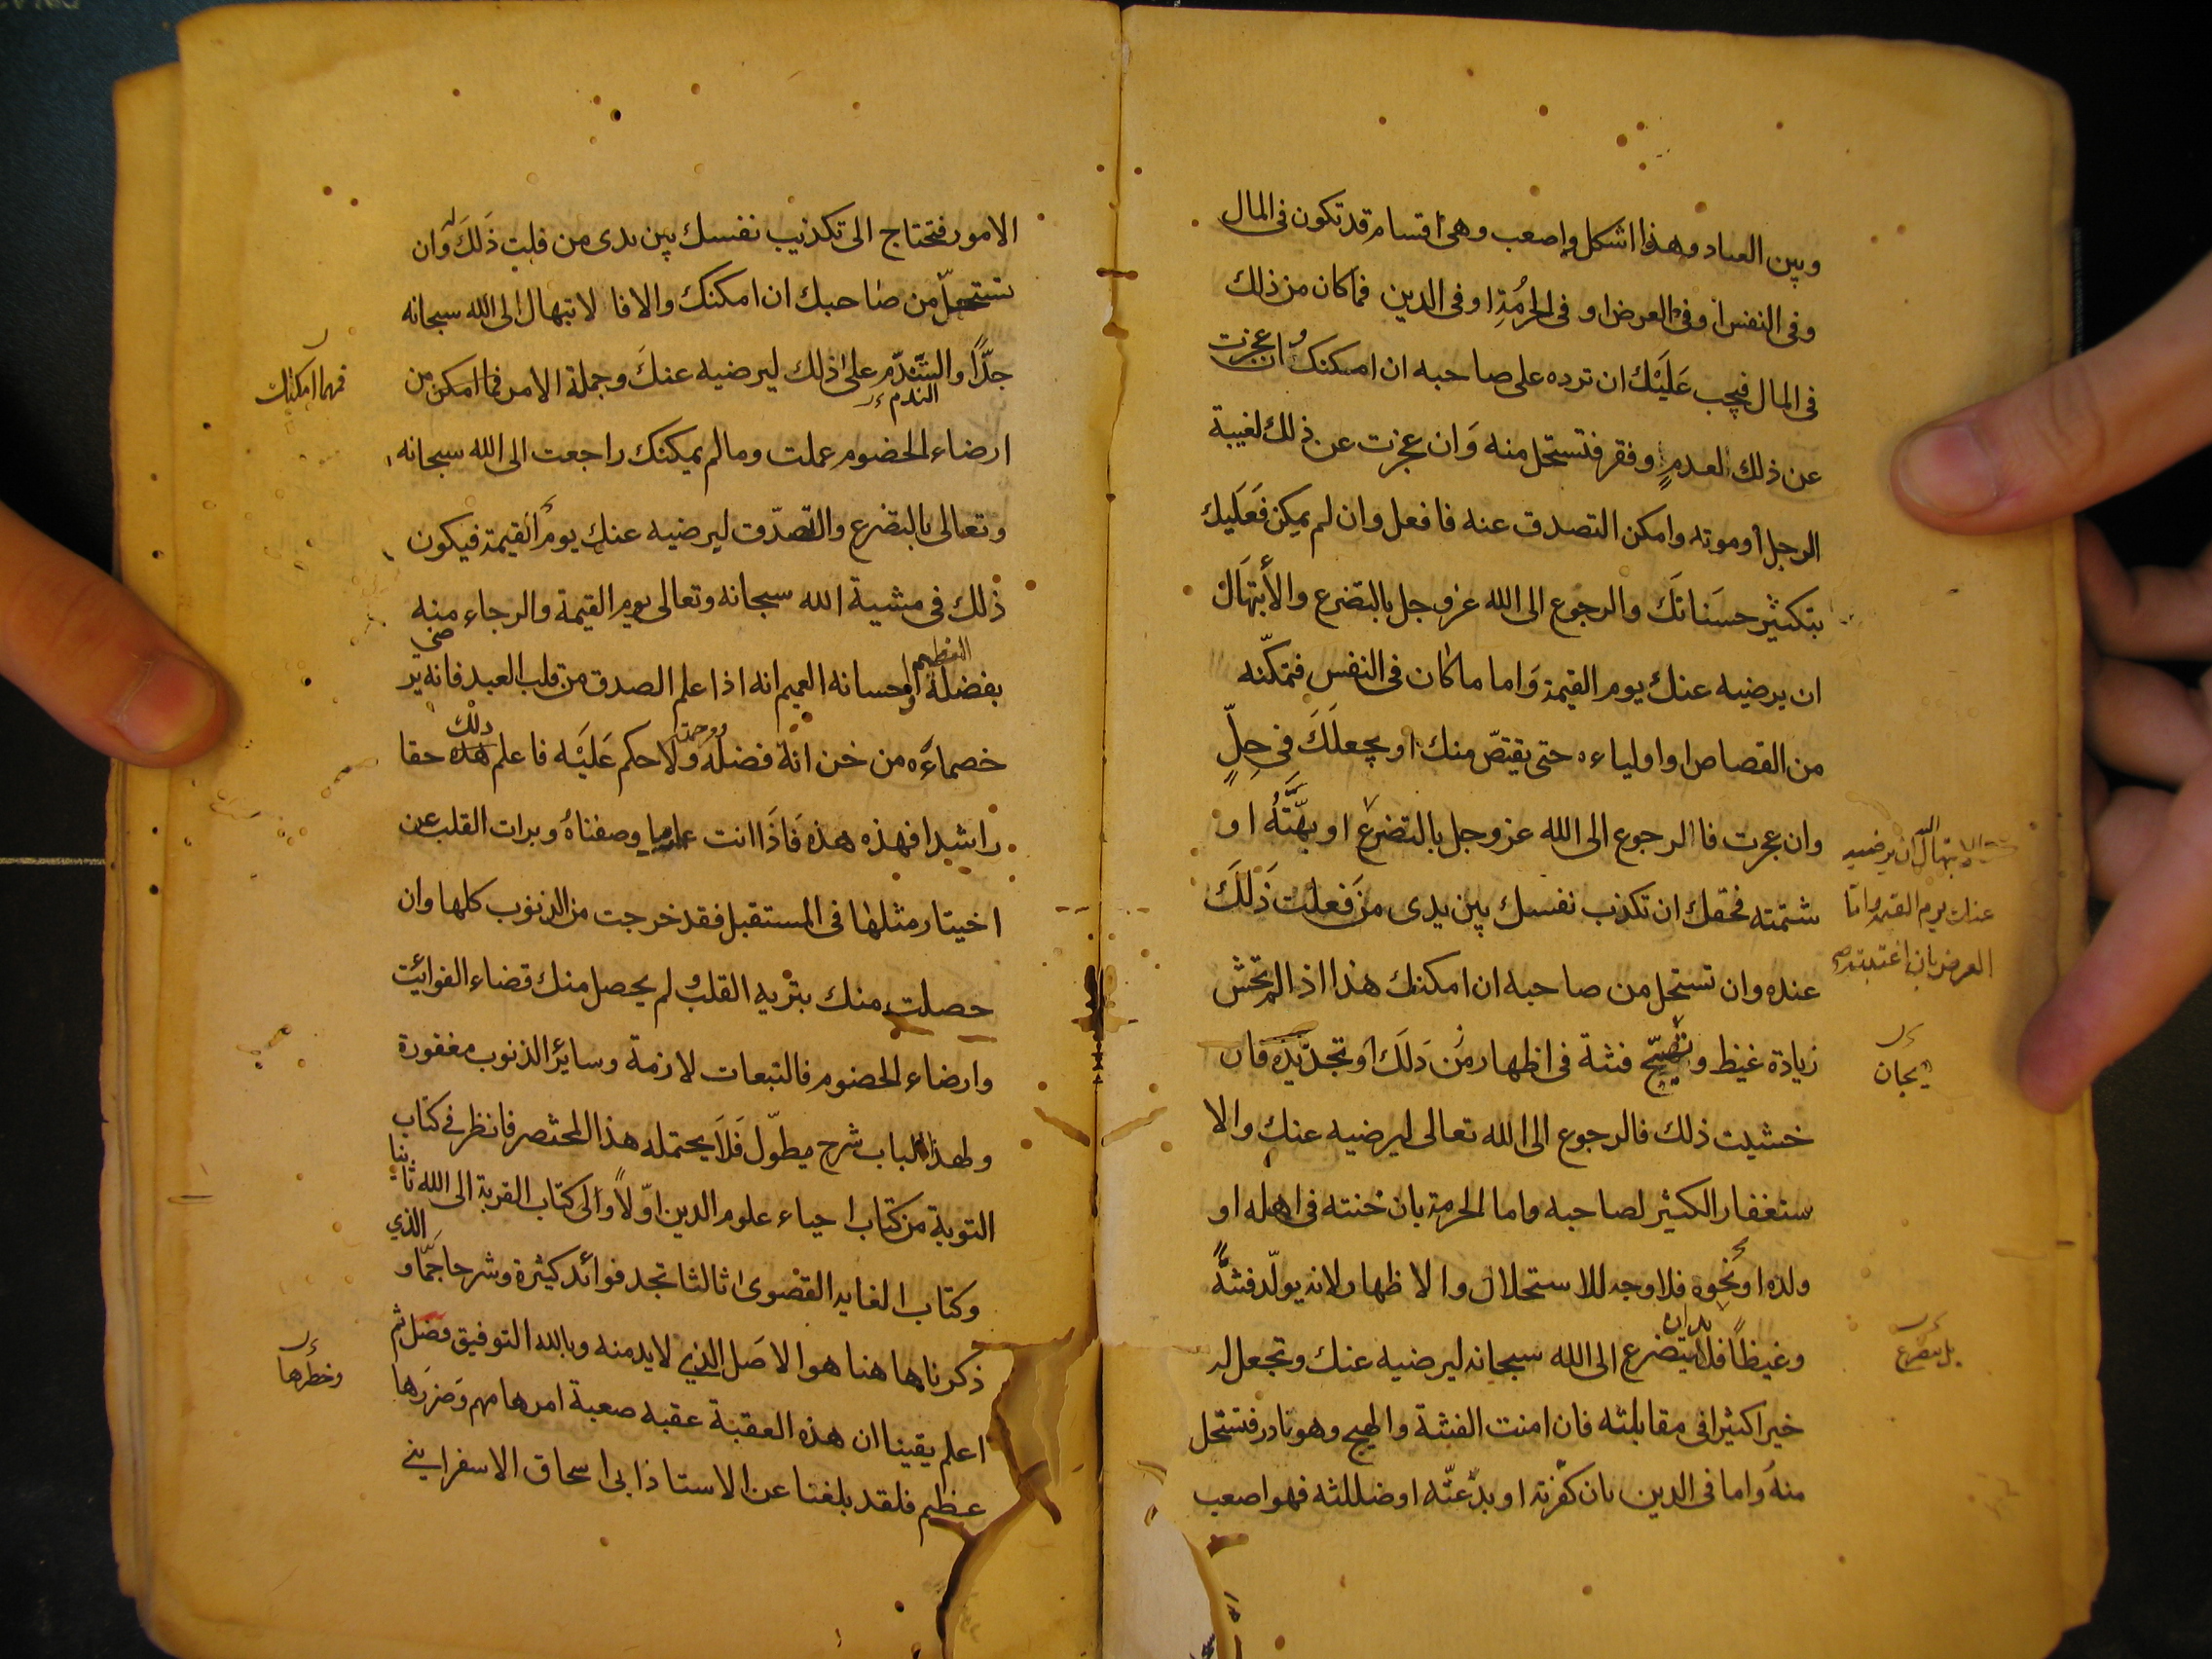 وبين العباد وهذا اشكل واصعب وهى اقسام قد تكون فى المال
وفى النفس او فى العرض او فى الحرمة او فى الدين فما كان من ذلك
فى المال فيجب عليك ان ترده على صاحبه ان امكنك وان عجزت
عن ذلك لعدم او فقر فتستحل منه وان عجزت عن ذلك لغيبة
الرجل او موته وامكن التصدق عنه فافعل وان لم يمكن فعليك
بتكثير حسناتك والرجوع الى الله عز وجل بالتضرع والابتهال
ان يرضيه عنك يوم القيمة واما ما كان فى النفس فتمكنه
من القصاص او اولياءه حتى يقتص منك او يجعلك فى حل
وان عجزت فا الرجوع الى الله عز وجل بالتضرع او بهته او
شتمته فحقك ان تكذب نفسك بين يدى من فعلت ذلك
عنده وان تستحل من صاحبه ان امكنك هذا اذا لم تخش
زيادة غيظ وتهيج فتنة فى اظهار من ذلك او تجديده فان
خشيت ذلك فالرجوع الى الله تعالى ليرضيه عنك والا
ستغفار الكثير لصاحبه واما الحرمة بان خنته فى اهله او
ولده او نحوه فلا وجه للاستحلال والاظهار لانه يولد فتنة
وغيظا فلا يتضرع الى الله سبحانه ليرضيه عنك وتجعل له
خيرا كثيرا فى مقابلته فان امنت الفتنة والهيج وهو نادر فتستحل
منه واما فى الدين بان كفرته او بدعته او ضللته فهو اصعب
والابتهال الى ان يرضيه
عنك يوم القيمة واما
العرض بان اغتبته
بل يتضرع
الامور فتحتاج الى تكذيب نفسك بين يدى من قلت ذلك له وان
تستحل من صاحبك ان امكنك والا فا لابتهال الى الله سبحانه
جدا والتندم على ذلك ليرضيه عنك وجملة الامر فما امكن من
الندم
ارضاء الخصوم عملت وما لم يمكنك راجعت الى الله سبحانه
وتعالى بالتضرع والتصدق ليرضيه عنك يوم القيمة فيكون
ذلك فى مشية الله سبحانه وتعالى يوم القيمة والرجاء منه
بفضله العظيم واحسانه العميم انه اذا علم الصدق من قلب العبد فانه يرضى
خصماءه من خزانة فضله ورحمته ولا حكم عليه فاعلم هذه ذلك حقا
راشدا فهذه هذه فاذا انت عملت ما وصفناه وبرات القلب عن
اختيار مثلها فى المستقبل فقد خرجت من الذنوب كلها وان
حصلت منك بتريه القلب ولم يحصل منك قضاء الفوايت
وارضاء الخصوم فالتبعات لازمة وساير الذنوب مغفورة
ولهذا الباب شرح مطول فلا يحتمله هذا المختصر فانظر فى كتاب
التوبة من كتاب احياء علوم الدين اولا والى كتاب القربة الى الله ثانيا
وكتاب الغاية القصوى ثالثا تجد فوائد كثيرة وشرحا جما و الذي
ذكرناها هنا هو الاصل الذى لا بد منه وبالله التوفيق فصل ثم
اعلم يقينا ان هذه العقبة عقبة صعبة امرها مهم وضررها
عظيم فلقد بلغنا عن الاستاذ ابى اسحاق الاسفراينى
فمهما امكنك
وخطرها